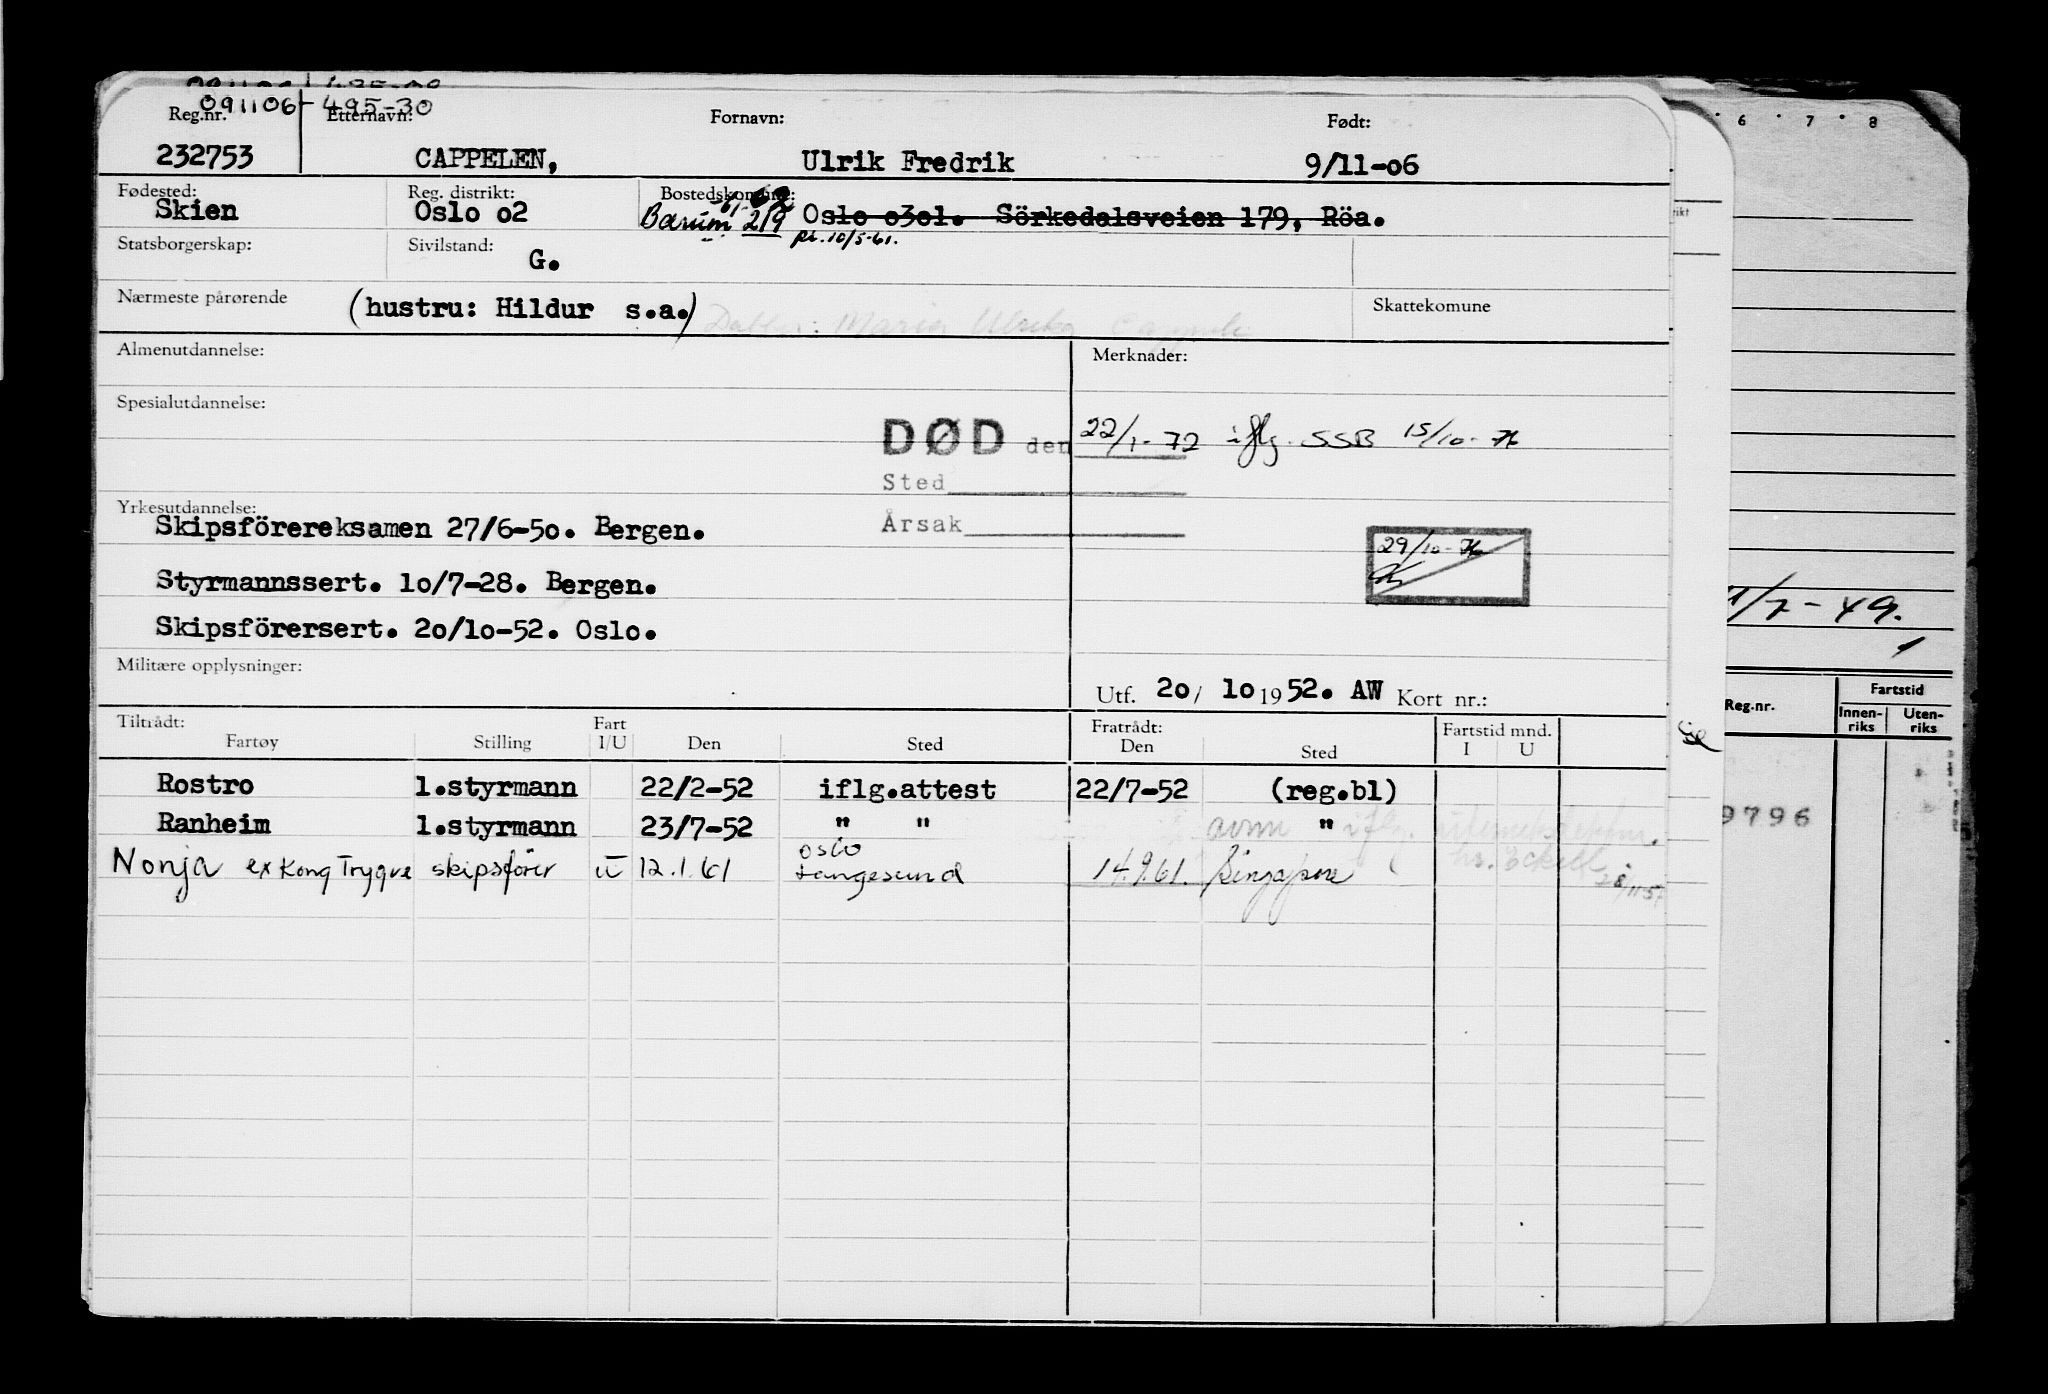 091106-495-30
Reg.nr. Etternavn: Fornavn: Født:
232753 CAPPELEN, Ulrik Fredrik 9/11-o6
Fødested: Reg. distrikt: Bostedskomune:
Skien Oslo o2 Bærum 219 Oslo o3o1. Sörkedalsveien 179, Röa.
10/5-61.
Statsborgerskap: Sivilstand: G.
Nærmeste pårørende (hustru: Hildur s.a.) Maria Ulrika Skattekomune
Almenutdannelse: Merknader:
Spesialutdannelse:
DØD den 22/1-72 iflg. SSB 15/10-
Sted
Årsak
Yrkesutdannelse:
Skipsförereksamen 27/6-5o. Bergen.
29/10-
Styrmannssert. lo/7-28. Bergen.
Skipsförersert. 2o/lo-52. Oslo.
Militære opplysninger:
Utf. 2o/ lo 1952. AW Kort nr.:
Tiltrådt: Fart Fratrådt: Fartstid mnd.
Fartøy Stilling I/U Den Sted Den Sted I U
Rostro 1.styrmann 22/2-52 iflg.attest 22/7-52 (reg.bl)
Ranheim 1.styrmann 23/7-52 " " "
Nonja ex Kong Trygve skipsfører u 12.1.61 oslo Langesund 14.9.61. Singapore
6 7 8
/7-49.
Reg.nr. Fartstid
Innen-riks Uten-riks
9796